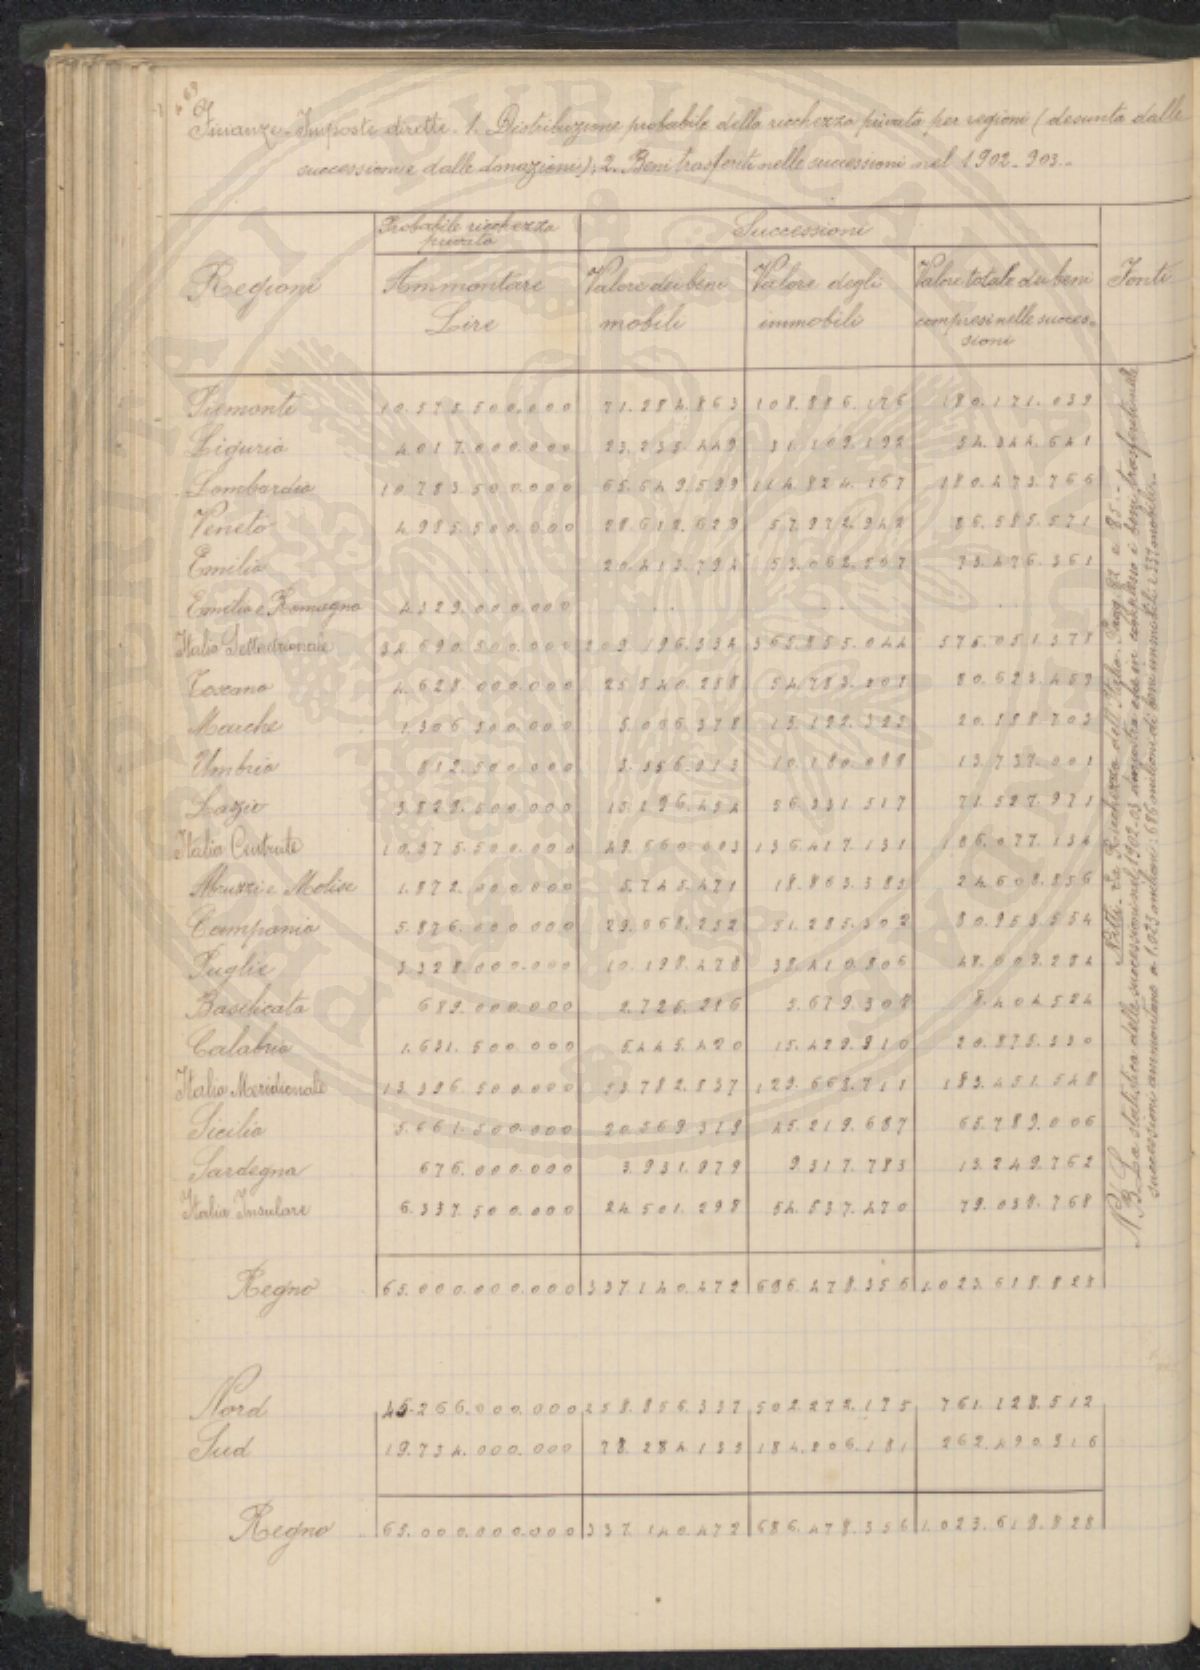 Finanze - Imposte dirette. 1. Distribuzione probabile della ricchezza privata per regioni (desunta dalle
successioni e dalle donazioni); 2. Beni trasferiti nelle successioni nel 1902-903.-
Probabile ricchezza privata Successioni
Regioni Ammontare Valore dei beni Valore degli Valore totale dei beni Fonti
Lire mobili immobili compresi nelle succes-
sioni
Piemonte 10.575.500.000 71.284.863 108.886.176 180.171.039
Liguria 4017.000.000 23.235.449 31.109.192 54.344.641
Lombardia 10.783.500.000 65.649.599 114.824.167 180.473.766
Veneto 4.985.500.000 28.612.629 57.972.942 86.585.571
Emilia 20.413.794 53.062.567 73.476.361
Emilia e Romagna 4329.000.000
Italia Settentrionale 34.690.500.000 209.196.334 365.855.044 575.051.378
Toscana 4.628.000.000 25.840.258 54.783.201 80.623.459
Marche 1.306.500.000 5.066.378 15.122.325 20.188.703
Umbria 612.500.000 3.556.913 10.180.088 13.737.001
Lazio 3.828.500.000 15.196.454 56.331.517 71.527.971
Italia Centrale 10.375.500.000 49.660.003 136.417.131 186.077.134
Abruzzi e Molise 1.872.000.000 5.745.471 18.863.385 24.608.856
Campania 5.876.000.000 29.668.252 51.285.302 80.953.554
Puglie 3.328.000.000 10.198.478 38.410.806 48.609.284
Basilicata 689.000.000 2.726.216 5.679.308 8.404.524
Calabria 1.631.500.000 5.445.420 15.429.910 20.875.330
Italia Meridionale 13.396.500.000 53.782.837 129.668.711 183.451.548
Sicilia 5.661.500.000 20.569.319 45.219.687 65.789.006
Sardegna 676.000.000 3.931.979 9.317.783 13.249.762
Italia Insulare 6.337.500.000 24.501.298 54.537.470 79.038.768
Regno 65.000.000.000 337.140.472 696.478.356 1.023.618.828
Nord 45.266.000.000 258.856.337 502.272.175 761.128.512
Sud 19.734.000.000 78.284.135 184.206.181 262.490.316
Regno 65.000.000.000 337.140.472 686.478.356 1.023.618.828
Nitti - La Ricchezza dell'Italia. Pagg. 82 e 85.-
N.B. La statistica delle successioni nel 1902-03 dimostra che in complesso i beni trasferiti nelle
successioni ammontano a 1.023 milioni: 686 milioni di beni immobili e 337 mobili.-